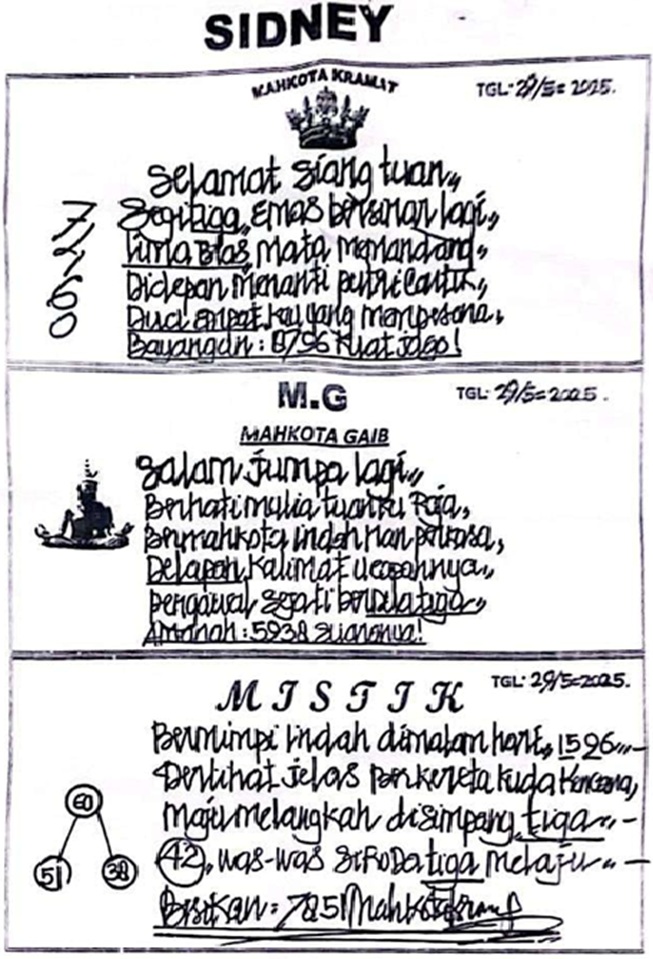 SIDNEY
MAHKOTA KRAMAT
TGL: 29/5= 2025.
Selamat siang tuan,,
7, Segitiga,, Emas bersinar lagi,,
2, Lima Blas, mata memandang,
6 Didepan menanti putri cantik,,
0 Duci empat, kau yang mempesona,
Bayangan: 8796 Kuat jogo!
M.G
TGL: 29/5=2025.
MAHKOTA GAIB
Salam jumpa lagi,,
Berhati mulia tuanku Raja,
Bermahkota indah nan perkasa,
Delapan, Kalimat ucapannya,,
pengawal sejati berpela tiga,,
Amanah: 5938 Suaranya!
MISTIK
TGL: 29/5=2025.
Bermimpi indah dimalam hari,, 1596,,,-
60 Derlihat jelas Berkereta Kuda Kencana,
maju melangkah disimpang tiga,,-
51 38 42, was-was SiRoda tiga melaju,,-
Bisikan: 7251 Mahkota